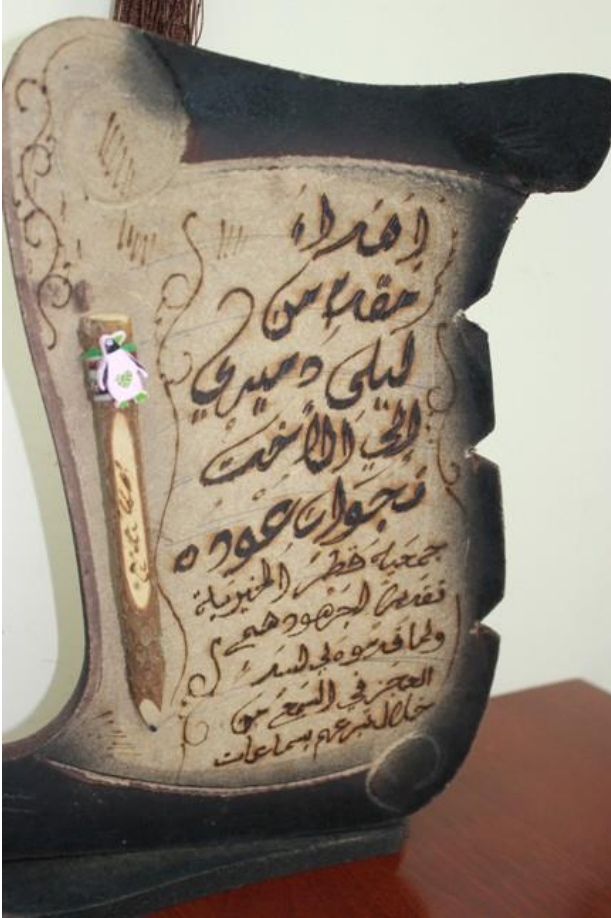 إهداء
مقدم من
ليلى دميري
إلى الأخت
نجوان عوده
جمعية قطر الخيرية
تقديراً لجهودهم
ولما قدموه لسد
العجز في السمع من
خلال تبرعهم بسماعات